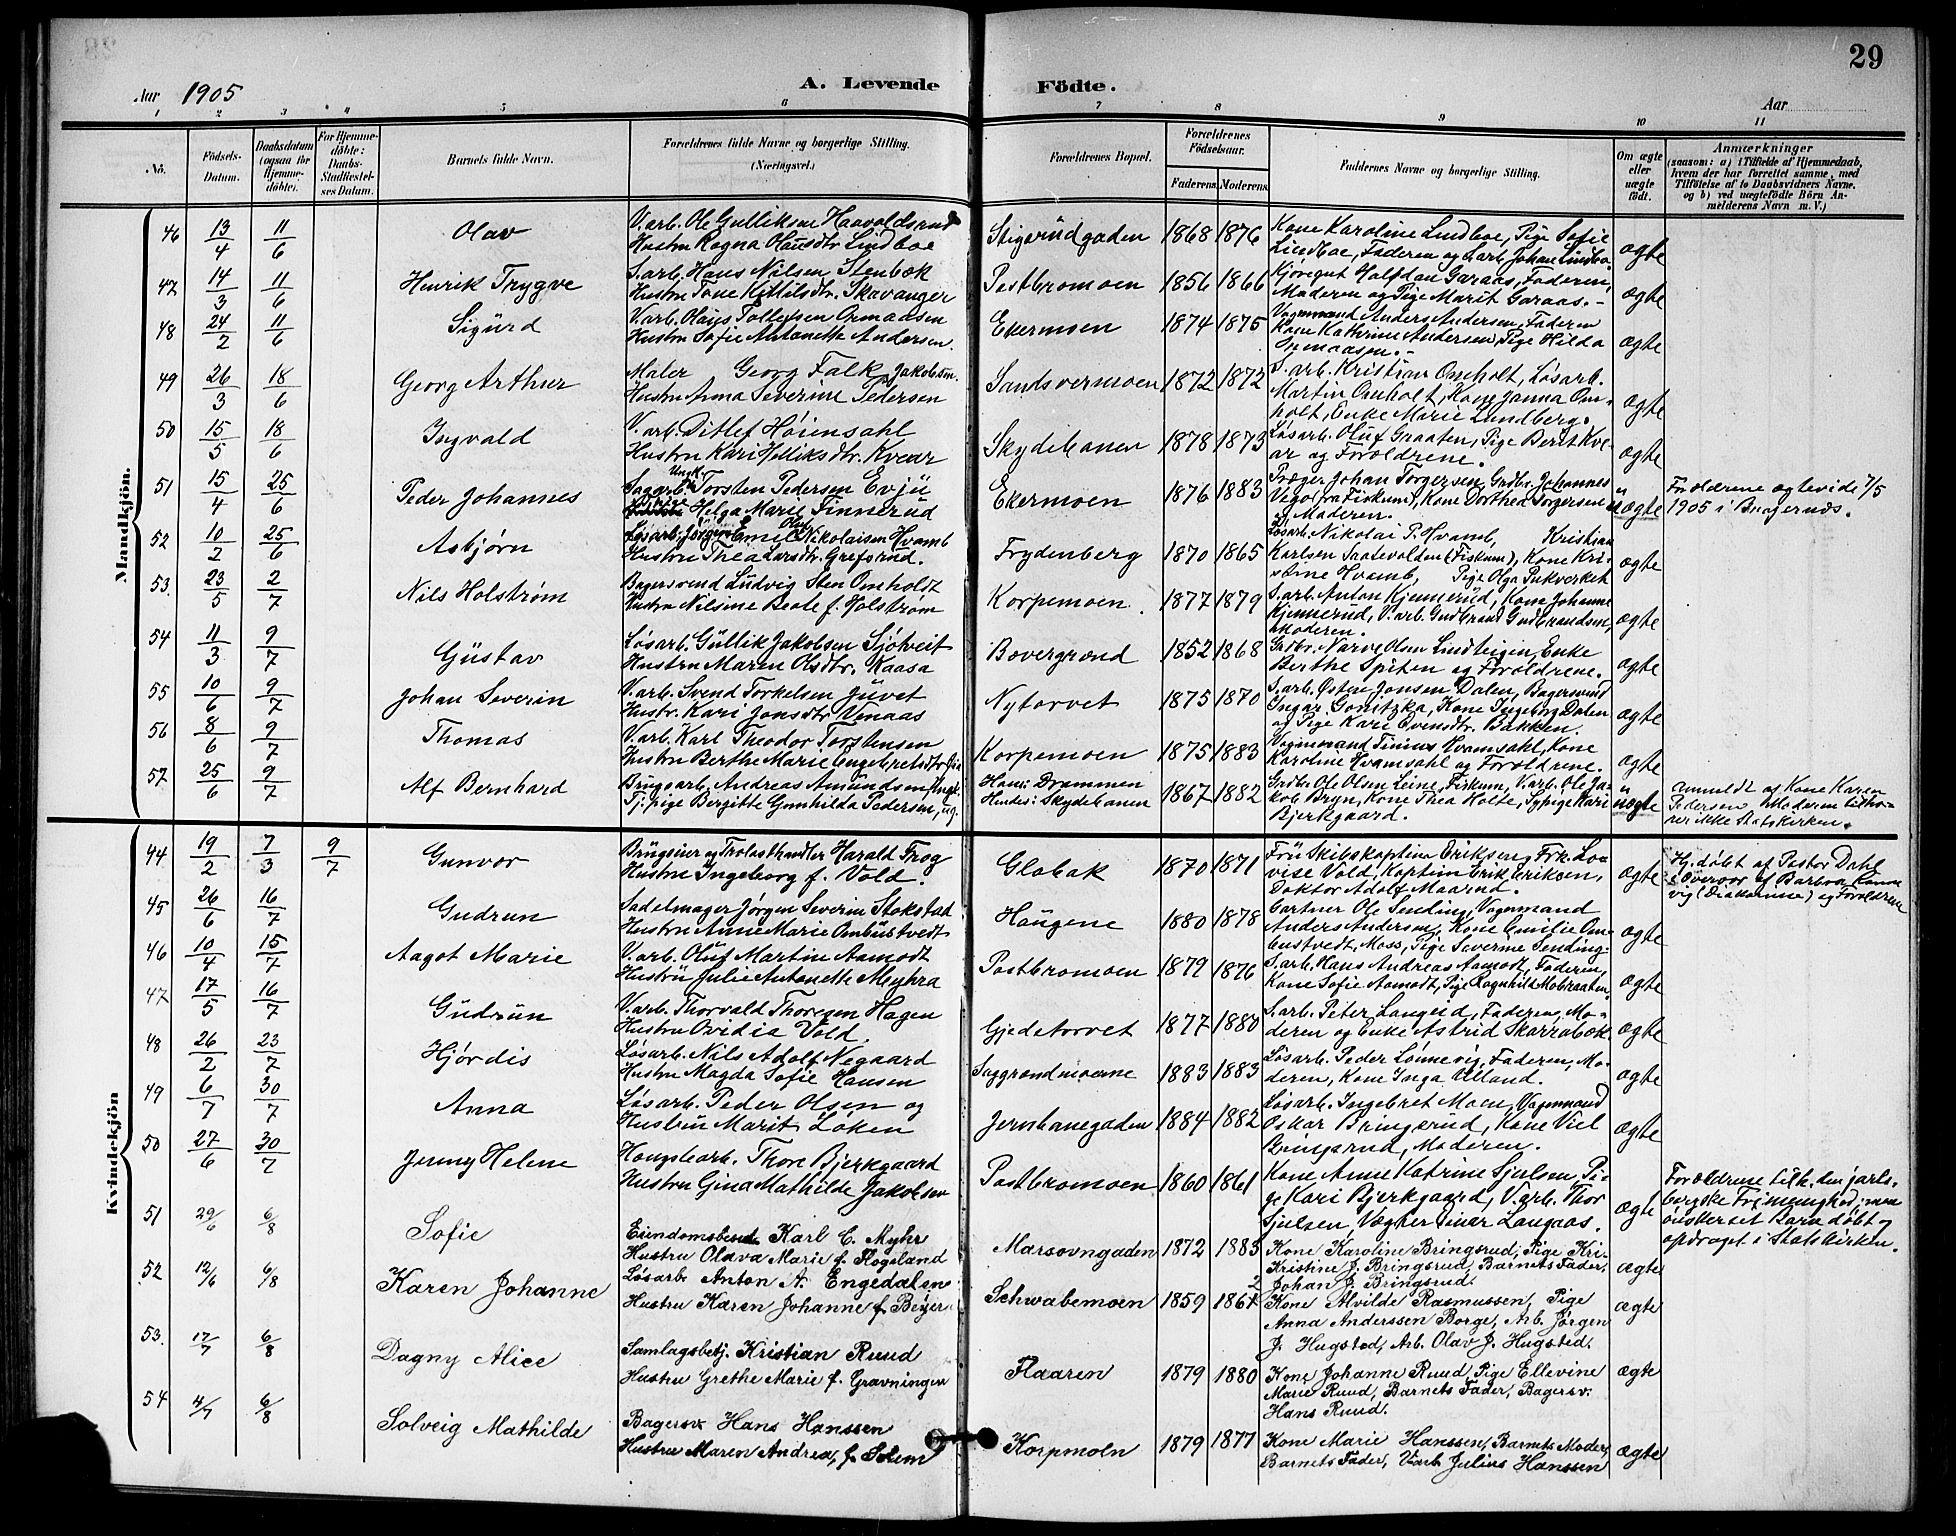 29
Aar 1905
A. Levende Födte.
Aar
1 2 3 4 5 6 7 8 9 10 11
No.
Födsels-Datum.
Daabsdatum (ogsaa for Hjemme-döbte).
For Hjemme-döbte: Daabs-Stadfæstel-ses Datum.
Barnets fulde Navn.
Forældrenes fulde Navne og borgerlige Stilling. (Næringsvei.)
Forældrenes Bopæl.
Forældrenes Födselsaar.
Faderens. Moderens.
Faddernes Navne og borgerlige Stilling.
Om ægte eller uægte födt.
Anmærkninger
(saasom: a) i Tilfælde af Hjemmedaab, hvem der har forrettet samme, med Tilföielse af to Daabsvidners Navne, og b) ved uægtefödte Börn An-melderens Navn m. V.)
Mandkjön.
46 13/4 11/6 Olav
V.arb. Ole Gulliksen Haavoldsrud
Hustru Ragna Olausdtr. Lindboe
Stigsrudgaden 1868 1876
Kone Karoline Lindboe, Pige Sofie
Lindboe, Faderen og S.arb. Johan Lindbo.
ægte
47 14/3 11/6 Henrik Trygve
S.arb. Hans Nilsen Stenbæk
Hustru Tone Kittilsdtr. Skavanger
Postbromoen 1856 1866
Kjøregut Halfdan Garaas, Faderen,
Moderen og Pige Marit Garaas.-
ægte
48 24/2 11/6 Sigurd
V.arb. Olaus Tollefsen Opmaasen
Hustru Sofie Antonette Andersen.
Ekermoen 1874 1875
Vognmand Anders Andersen, Faderen
Kone Kathrine Andersen, Pige Hilda
Opmaasen.-
ægte
49 26/3 18/6 Georg Arthur
Maler Georg Falk Jakobsen.
Hustru Anna Severine Pedersen
Sandsvermoen 1872 1872
S.arb. Kristian Omholt, Løsarb.
Martin Omholt, Kone Janna Om-
holt, Enke Marie Lundberg.
ægte
50 15/5 18/6 Ingvald
V.arb. Ditlef Høiensahl
Hustru Kari Helliksdtr. Kvear
Skydebanen 1878 1873
Løsarb. Oluf Graaten, Pige Berit Kve-
ar og Forældrene.
ægte
51 15/4 25/6 Peder Johannes
Sagarb. Ungk. Torsten Pedersen Evju
Helga Marie Finnerud
Ekermoen 1876 1883
Præger Johan Torgersen, Grdbr. Johannes
Vego (fra Fiskum), Kone Dorthea Torgersen
og Moderen.
uægte
Forældrene ægteviede 7/5
1905 i Bragernes.
52 10/2 25/6 Asbjørn
Løsarb. Jørgen Emil Olaf Nikolaisen Hvamb
Hustru Thea Larsdtr. Grefsrud.
Frydenberg 1870 1865
Løsarb. Nikolai P. Hvamb, Kristian
Karlsen Saatevolden (Fiskum), Kone Kri-
stine Hvamb, Pige Olga Pukverket
ægte
53. 23/5 2/7 Nils Holstrøm
Bagersvend Ludvig Sten Omholdt
Hustru Nilsine Beate f. Holstrøm
Korpemoen. 1877 1879
S.arb. Anton Kjennerud, Kone Johanne
Kjennerud, V.arb. Gudbrand Gudbrandsen,
Moderen.
ægte
54 11/3 9/7 Gustav
Løsarb. Gullik Jakobsen Sjølveit
Hustru Maren Olsdtr. Kaasa
Bovergrænd 1852 1868
Grdbr. Narve Olsen Lindteigen, Enke
Berthe Spiten og Forældrene.
ægte
55 10/6 9/7 Johan Severin
V.arb. Svend Torkelsen Juvet
Hustr. Kari Jonsdtr. Venaas
Nytorvet 1875 1870
S.arb. Østen Jonsen Dalen, Bagersvend
Ingar Gonitzka, Kone Ingeborg Dalen
og Pige Kari Evensdtr. Bakken.
ægte
56 8/6 9/7 Thomas
V.arb. Karl Theodor Torstensen
Hustru Berthe Marie Engebretsdtr.
Korpemoen 1875 1883
Vognmand Tinius Hvamsahl, Kone
Karoline Hvamsahl og Forældrene.
ægte
57 25/6 9/7 Alf Bernhard
Brugsarb. Andreas Amundsen, Ungk.
Tj.pige Bergitte Gunhilda Pedersen, ug.
Hans: Drammen
Hendes: Skydebanen 1867 1882
Grdbr. Ole Olsen Leine, Fiskum, V.arb. Ole Ja-
kob Bryn, Kone Thea Holte, Sypige Kari
Bjerkgaard.
uægte
anmeldt af Kone Karen
Pedersen, Moderen tilhø-
rer ikke Statskirken.
Kvindekjön
44 19/2 7/3 9/7 Gunvor
Brugseier og Trælasthandler Harald Frog
Hustru Ingeborg f. Vold.
Glabak 1870 1871
Fru Skibskaptein Eriksen, Frk. Lo-
vise Vold, Kaptein Erik Eriksen,
Doktor Adolf Maarud.
ægte
Hj.døbt af Pastor Dahl
i Overvær af Barbra
vig (Diakonisse) og Forældrene
45 26/6 16/7 Gudrun
Sadelmager Jørgen Severin Stokstad
Hustru Anne Marie Ombustvedt
Haugene 1880 1878
Gartner Ole Sending, Vognmand
Anders Andersen, Kone Emilie Om-
bustvedt, Moss, Pige Severine Sending.
ægte
46 10/4 15/7 Aagot Marie
V.arb. Oluf Martin Aamodt
Hustru Julie Antonette Meyhra
Postbromoen 1879 1876
S.arb. Hans Andreas Aamodt, Faderen,
Kone Sofie Aamodt, Pige Ragnhild Mobraaten.
ægte
47 17/5 16/7 Gudrun
V.arb. Thorvald Thoresen Hagen
Hustru Ovidia Vold.
Gjedetorvet 1877 1880
S.arb. Peter Langeid, Faderen, Mo-
deren og Enke Astrid Skarrabæk
ægte
48 26/2 23/7 Hjørdis
Løsarb. Nils Adolf Vegaard
Hustru Magda Sofie Hansen
Saggrændmoene 1883 1883
Løsarb. Peder Lønnevig, Faderen, Mo-
deren, Kone Inga Ulland.
ægte
49 6/7 30/7 Anna
Løsarb. Peder Olsen og
Hustru Marit Løken
Jernbanegaden 1884 1882
Løsarb. Ingebret Moen, Vognmand
Oskar Bringsrud, Kone Viel
Bringsrud, Moderen.
ægte
50 27/6 30/7 Jenny Helene
Kongsbarb. Thore Bjerkgaard
Hustru Gina Mathilde Jakobsen
Postbromoen 1860 1861
Kone Anne Katrine Sjulsen, Pi-
ge Kari Bjerkgaard, V.arb. Thor
Sjulsen, Vægter Einar Langaas.
ægte
Forældrene tilh. den jarls-
bergske Frimenighed; men
ønsker set Barn døbt og
opdraget i Statskirken.
51 29/6 6/8 Sofie
Eiendomsbesd. Karl C. Myhr
Hustru Olava Marie f. Rogeland
Marsovngaden 1872 1883
Kone Karoline Bringsrud, Pige Kri-
Kristine J. Bringsrud, Barnets Fader,
Johan J. Bringsrud.
ægte
52 12/6 6/8 Karen Johanne
Løsarb. Anton A. Engedalen
Hustru Karen Johanne f. Beyer
Schwabemoen 1859 1862
Kone Alvilde Rasmussen, Pige
Anna Anderssen Borge, Arb. Jörgen
J. Hugsted, Arb. Olav J. Hugsted.
ægte
53. 17/7 6/8 Dagny Alice
Samlagsbetj. Kristian Ruud
Hustru Grethe Marie f. Gravningen
Flaaren 1879 1880
Kone Johanne Ruud, Pige Ellevine
Marie Ruud, Barnets Fader, Bagersv.
Hans Ruud.
ægte
54 4/7 6/8 Solveig Mathilde
Bagersv. Hans Hanssen
Hustru Maren Andrea, f. Solem
Korpmoen 1879 1877
Kone Marie Hanssen, Barnets Moder,
Barnets Fader, V.arb. Julius Hanssen
ægte